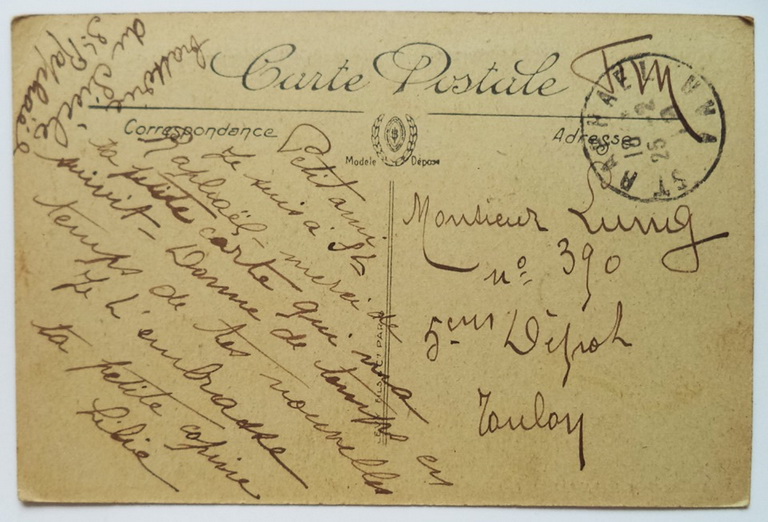 Carte Postale
FM
Correspondance
Adresse
Modèle Déposé
ST RAPHAEL
18
25
Petit ami
Je suis à St
Raphaël, merci de
ta petite carte qui m'a
suivit - Donne de temps en
temps de tes nouvelles
Je t'embrasse
ta petite copine
Lilie
du Siècle
St Raphaël
Monsieur Lunig
n° 390
5eme Dépot
Toulon